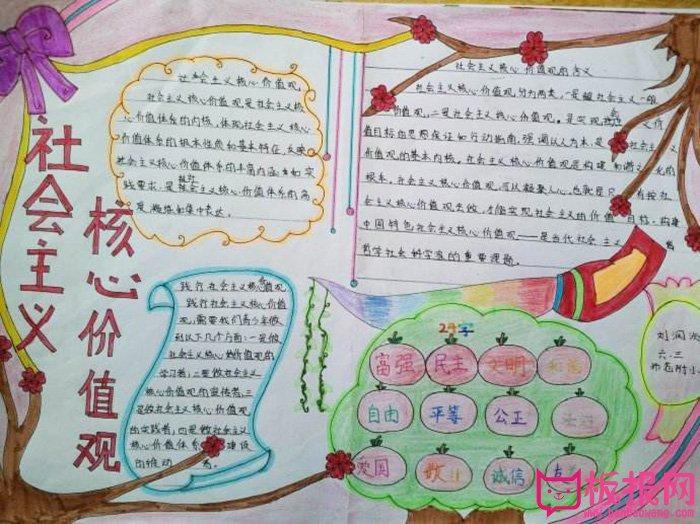 社会主义
核心价值观
社会主义核心价值观
社会主义核心价值观是社会主义核
心价值体系的内核，体现社会主义核心
价值体系的根本性质和基本特征，反映
社会主义核心价值体系的丰富内涵和实
践要求，是社会主义核心价值体系的高
度凝练和集中表达。
社会主义核心价值观的含义
社会主义核心价值观分为两类，一是
价值观，二是社会主义核心价值观，是实现
值目标的思想保证和行动指南，强调以人为本，是
价值观的基本内核。社会主义核心价值观是构建
根本。社会主义核心价值观，可以凝聚人心，也就是
社会主义核心价值观去做，才能实现社会主义的价值目标，构建
中国特色社会主义核心价值观——是当代社会主义
哲学社会科学家的重要课题。
践行社会主义核心价值观
践行社会主义核心价值
观，需要我们青少年做
到以下几个方面：一是做
社会主义核心价值观的
学习者；二是做社会主义
核心价值观的宣传者；三
是做社会主义核心价值观
的实践者；四是做社会主义
核心价值体系建设
的推动者。
24字
富强 民主 文明 和谐
自由 平等 公正 法治
爱国 敬业 诚信 友善
刘润
六.三
师范附小
板报网